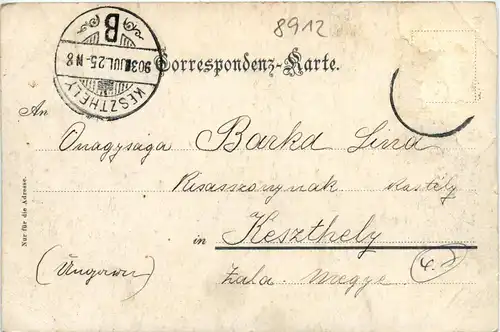 8912
B
903 JUL. 25-N8
KESZTHELY
Correspondenz-Karte.
An
Onagysága Barka Lina
Kisasszonynak Kastély
in Keszthely
(Ungarn)
Zala megye
Nur für die Adresse.